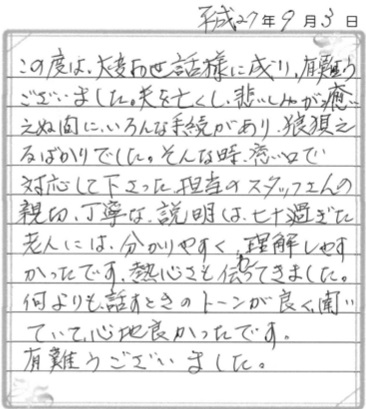 平成27年9月3日
この度は、大変お世話様に成り、有難う
ございました。夫を亡くし、悲しみが癒
えぬ間に、いろんな手続があり、狼狽え
るばかりでした。そんな時、窓口で
対応して下さった担当のスタッフさんの
親切、丁寧な説明は、七十過ぎた
老人には、分かりやすく、理解しやす
かったです、熱心さも伝わってきました。
何よりも、話すときのトーンが良く、聞い
ていて、心地良かったです。
有難うございました。